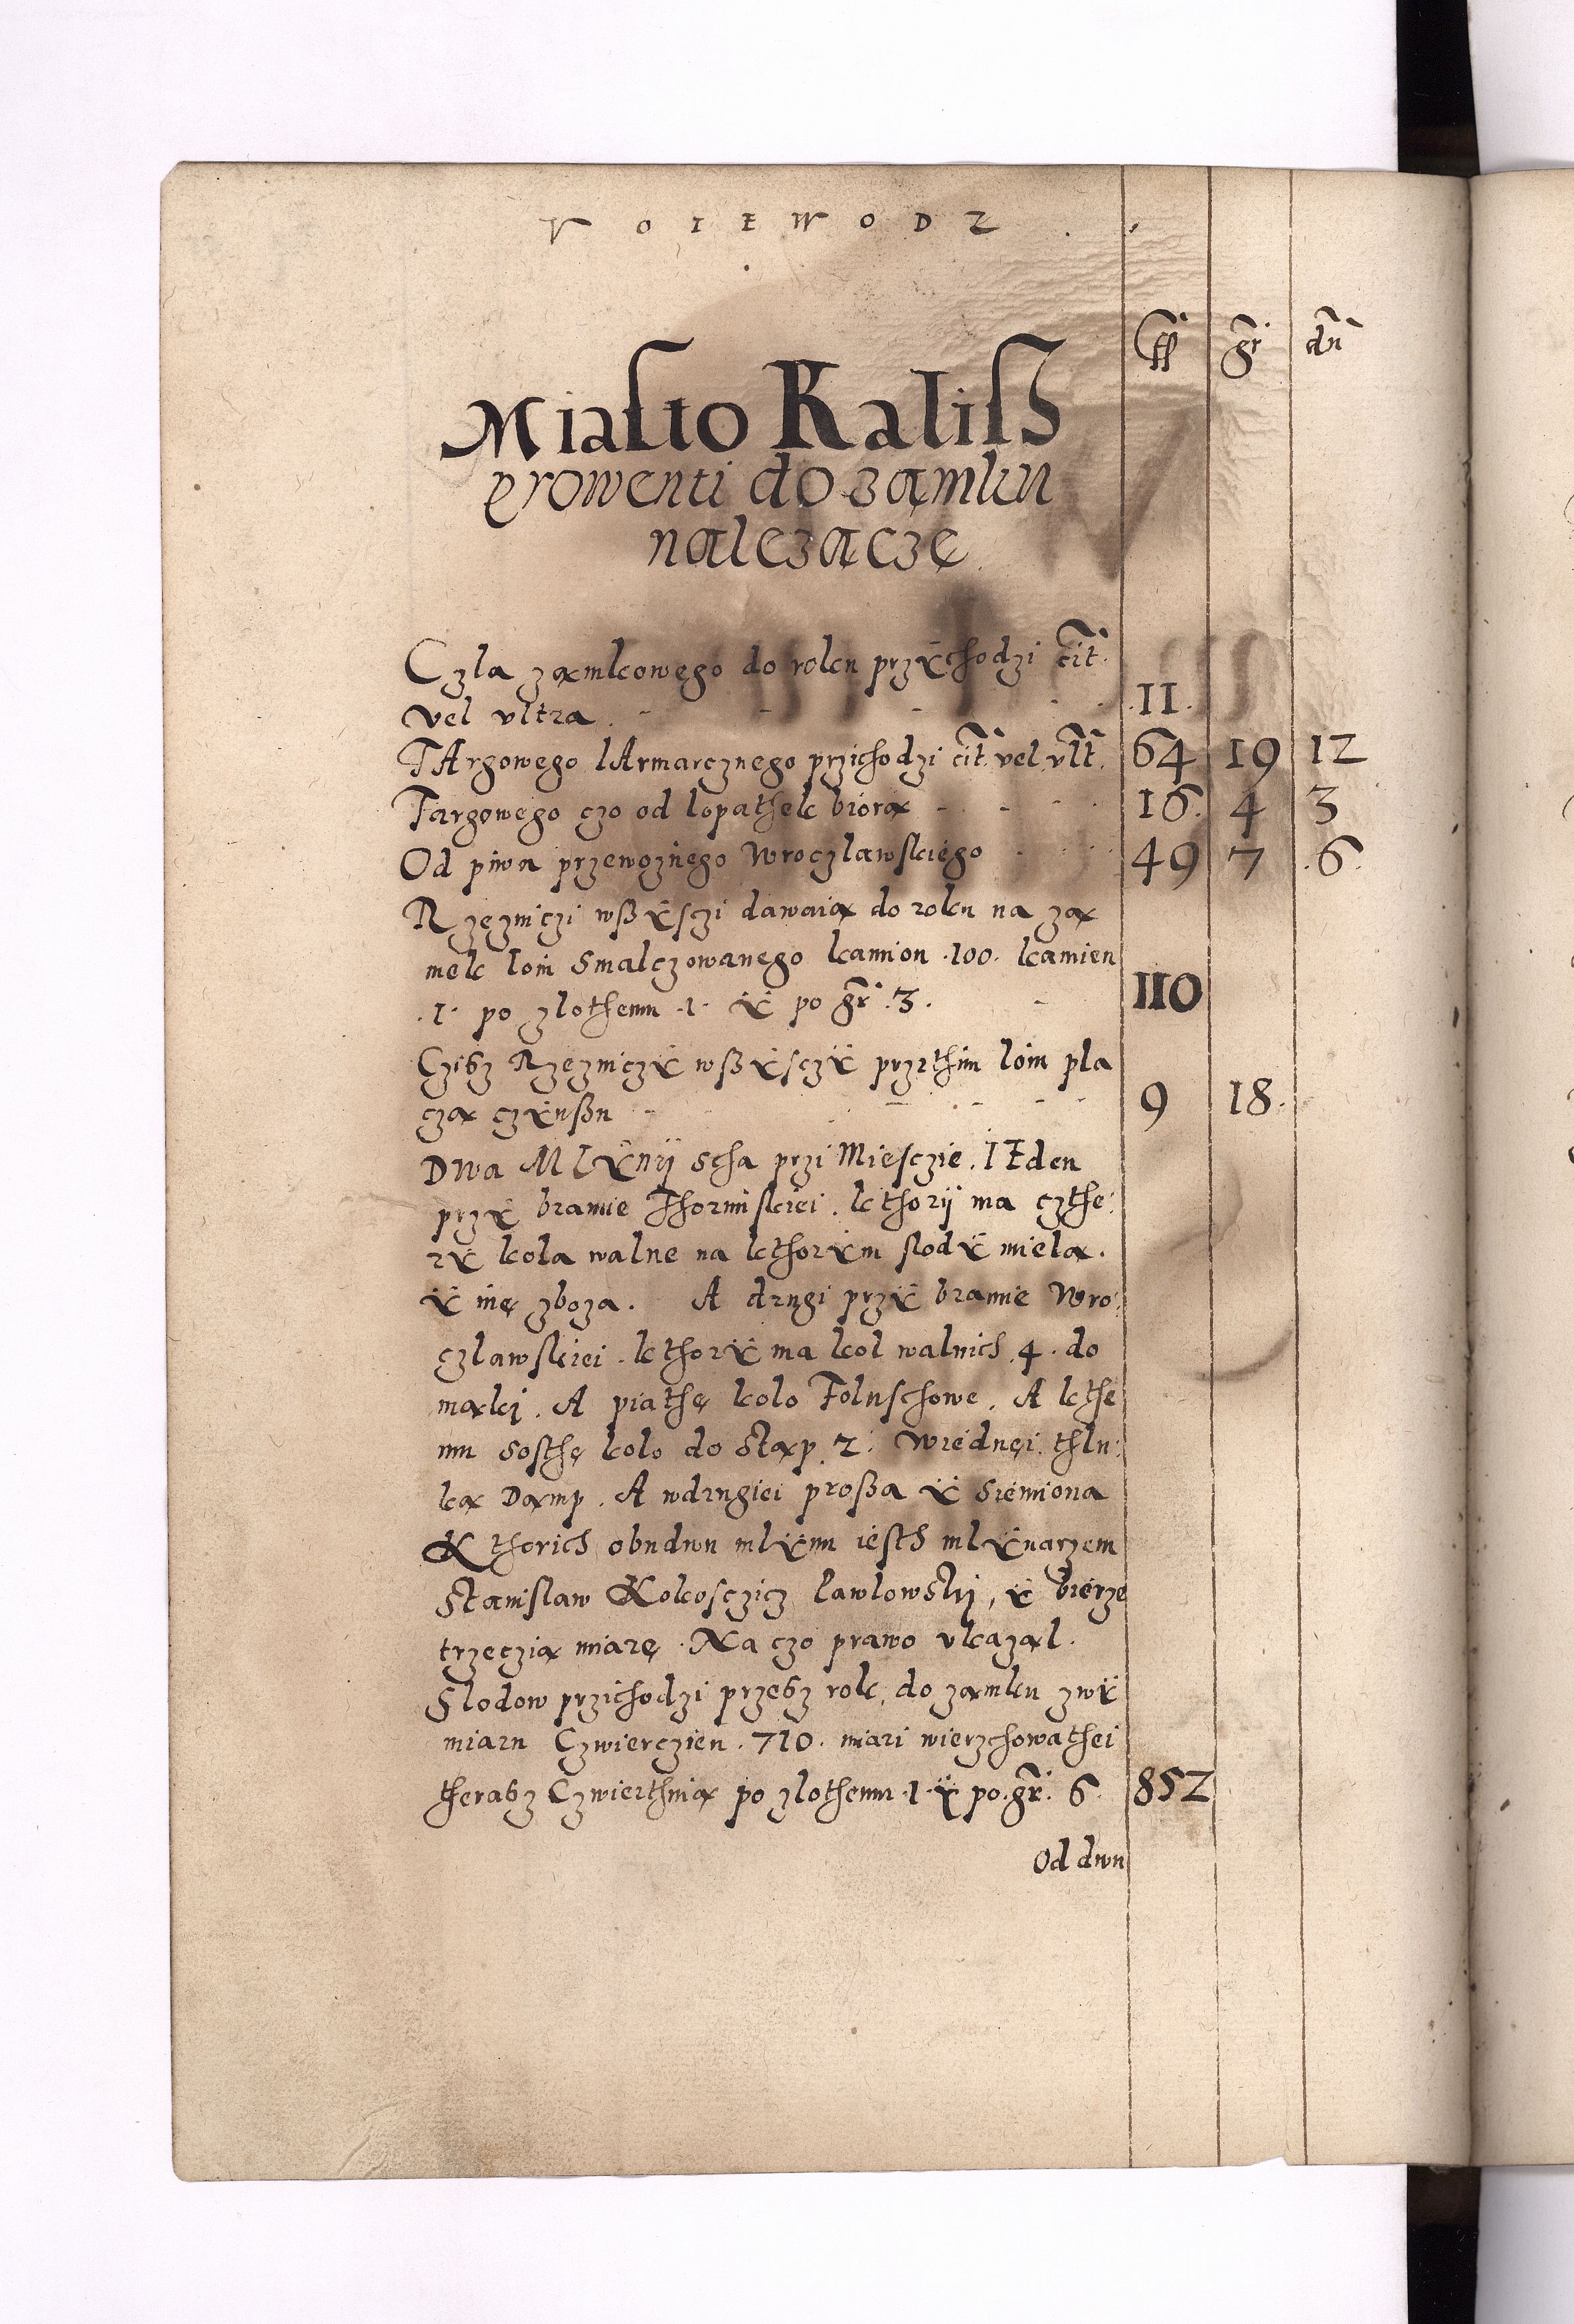 VOIEWODZ
ff gr dn
Miasto Kalisz
prowenti do zamku
należącze
Czla zamkowego do roku przÿchodzi cit.
vel vltra . - - - - . 11 .
TArgowego IArmarcznego przichodzi cit. vel vlt. 64 19 12
Targowego czo od lopathek biorą - - - 16. 4 3
Od piwa przewoznego Wroczlawskiego . . 49 7 .6.
Rzezniczi wßÿsczi dawaią do roku na za
mek loiu Smalczowanego kamion .100. kamien
.1. po zlothemu .1. ÿ po gr. 3. - 110
Cziß Rzezniczÿ wßÿsczÿ przithim loiu pla
czą czÿnßu - - - - - 9 18.
Dwa Mlÿnÿ scha przi Miesczie. IEden
przÿ bramie Thorunskiei. kthorÿ ma czthe:
rÿ kola walne na kthorÿm slodÿ mielą.
ÿ inę zboza. A drugi przÿ bramie Wro:
czlawskiei. kthorÿ ma kol walnich .4. do
mąki. A piathę kolo Foluschowe. A kthe
mu Sosthę kolo do Stąp .2. Wiednei. thlu:
ką Dąmp. A wdrugiei proßa ÿ Siemiona
Kthorich obudwu mlÿnu iesth mlÿnarzem
Stanislaw Kokosczicz lawlowski, ÿ bierze
trzeczią miarę. Na czo prawo vkazal.
Slodow przichodzi przeß rok, do zamku zwÿ
miaru Czwierczien .710. miari wierzchowathei
theraß Czwierthnia po zlothemu .1. ÿ po. gr. 6. 852
Od dwu